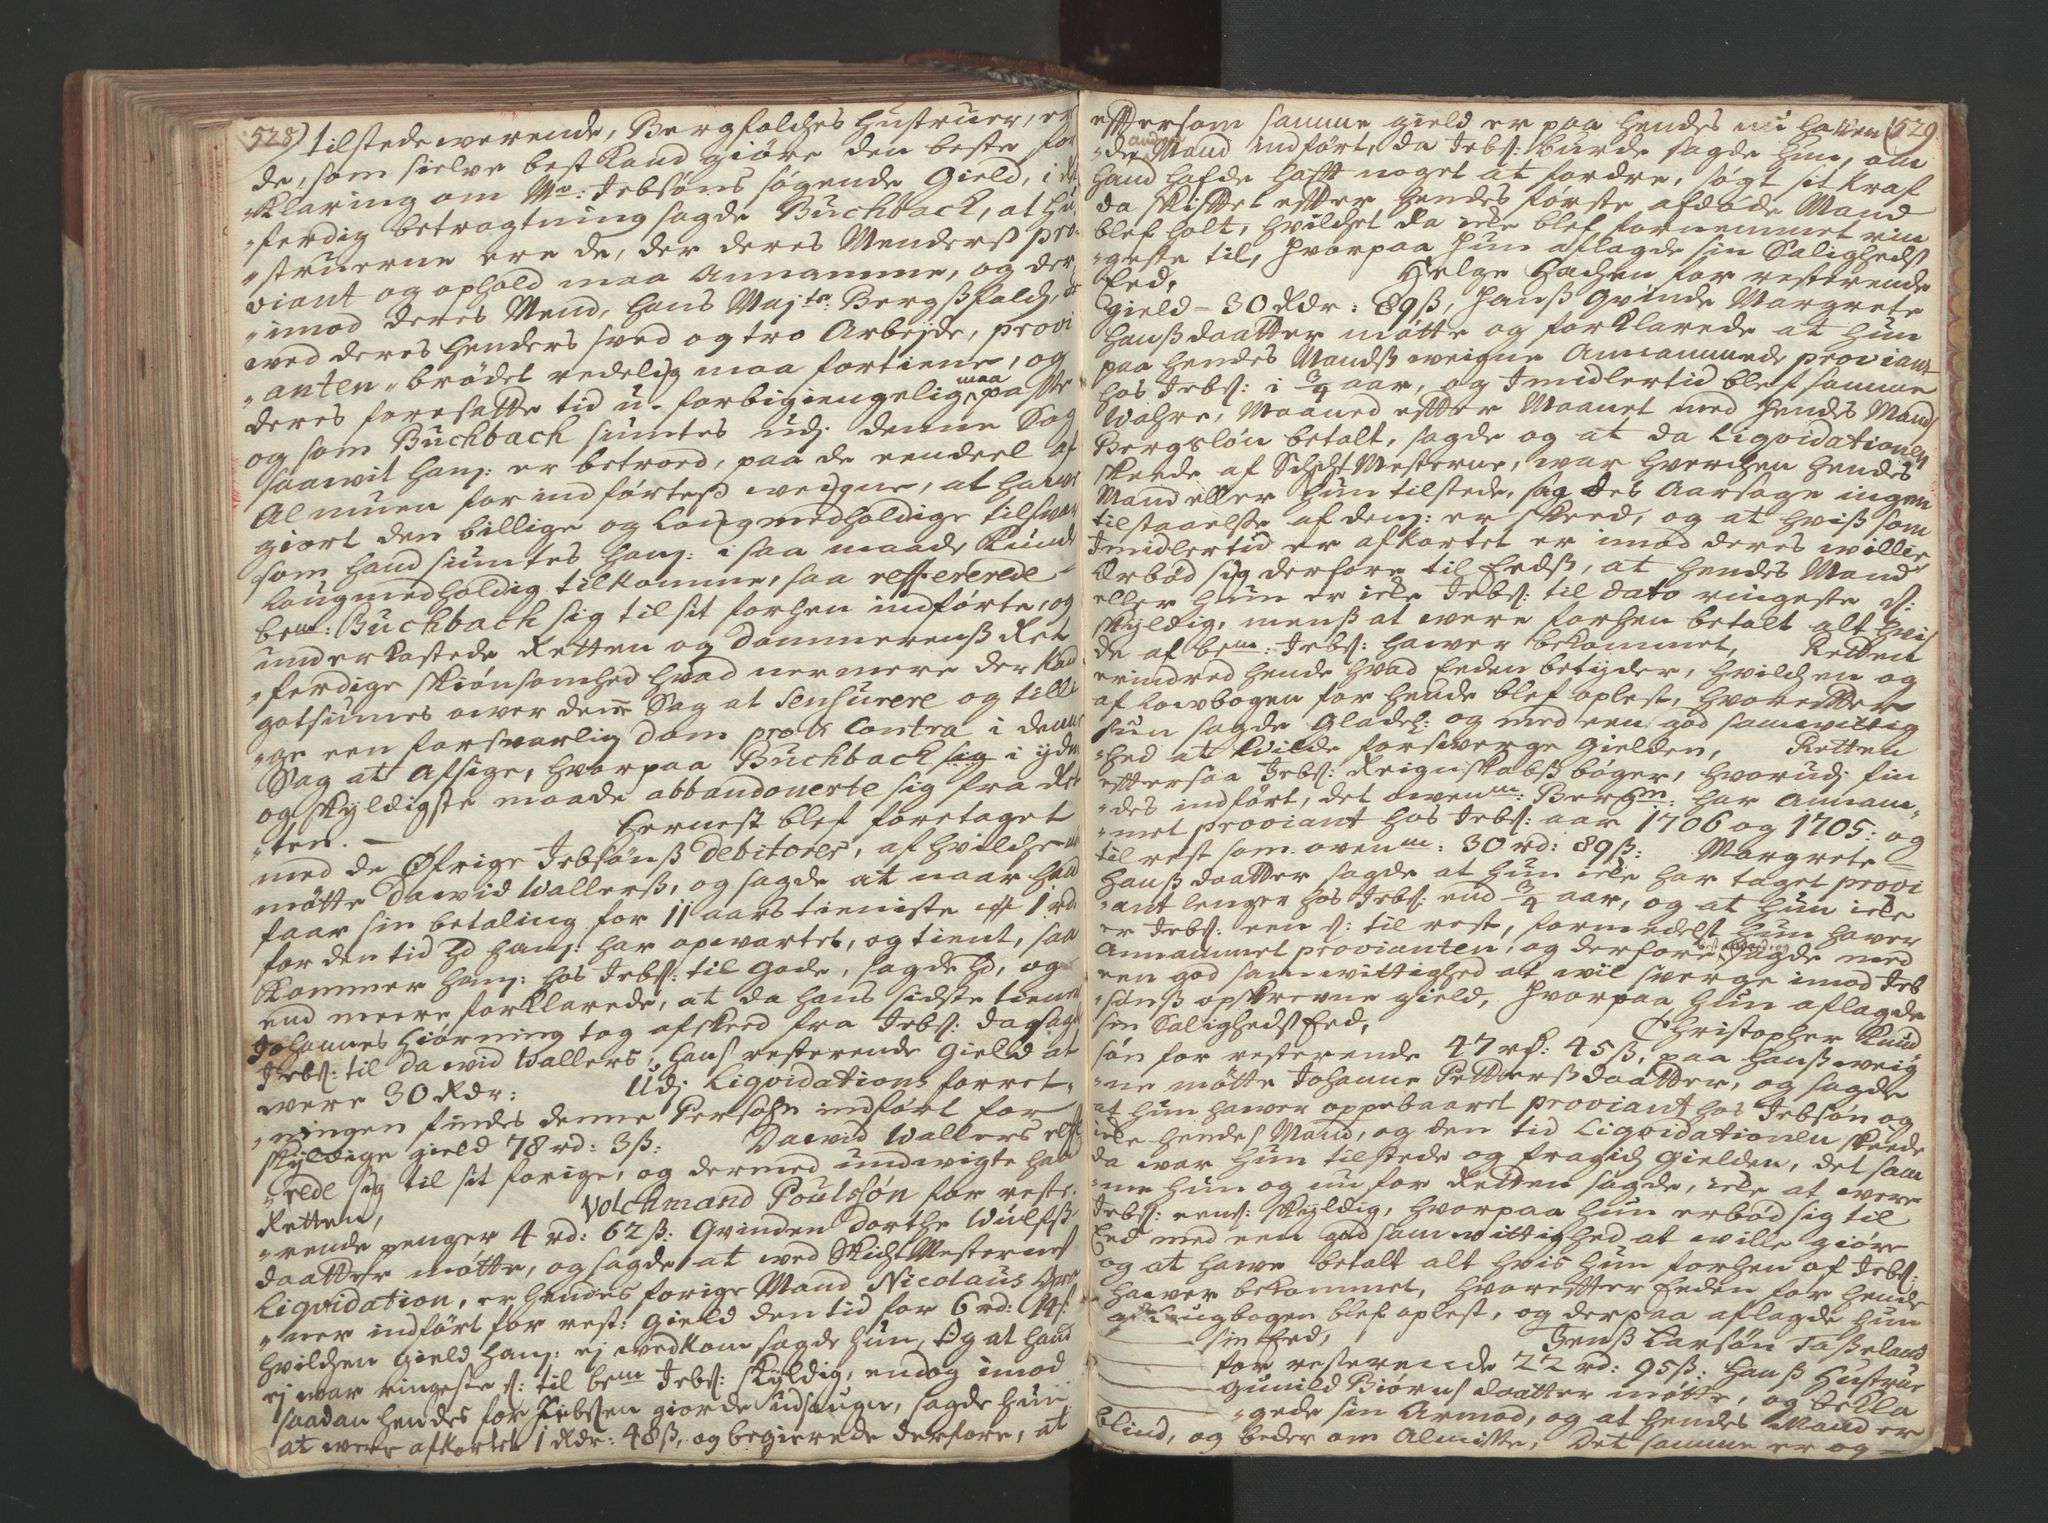 528) tilstede werende, Bergfolches Hustruer, er
de, som sielve best kand giøre den beste for
"klaring om Mr: Jebsøns søgende Gield, i Ret
"ferdig betragtning sagde Buchback, at Hu
"struerne ere de, der deres Menders pro
viant og ophold maa Annamme, og der
"imod deres Mend, hans Majts: Bergsfolch,
wed deres henders sved og tro Arbejde, provi
"anten "brødet redelig maa fortiene, og
deres foresatte tid u-forbigiengelig maa passe
og som Buchback siuntes udj denne Sag
saawit ham: er betroed, paa de eendeel af
Almuen for indførtes weigne, at hawe
giort den billige og Lougmedholdige tilsvar
som hand siuntes ham: i saa maade kunde
Lougmedholdig tilkomme, saa refererede
bem: Buchback sig til sit forhen indførte, og
underkastede Retten og Dommerens Ret
"ferdige skiønsomhed hvad nermere der kand
gotsiunes over denne Sag at Censurere og tilli
"ge een forsvarlig Dom pro & Contra i denne
Sag at afsige, hvorpaa Buchback sig i ydm
og skyldigste maade abbandonerte sig fra Ret
"ten. — Hernest blef foretaget
med de Øfrige Jebsøns Debitorer, af hvilche
møtte Dawid Wallers, og sagde at naar hand
faar sin betaling for 11 aars tieniste 1 rd
for den tid hand ham: har opwartet, og tient, saa
kommer ham: hos Jebs: til gode, sagde hand, og
end meere forklarede, at da hans sidste tieneste
Johannes Hiørning tog afskeed fra Jebs: da sagde
Jebs: til Dawid Wallers, hans resterende Gield at
were 30 Rdr: Udj Liqvidations forret
"ningen findes denne Persohn indført for
skyldige gield 78 rd: 3ß: Dawid Wallers reffe
"rede sig til sit forige, og dermed undwigte hand
Retten, Volchmand Poulssøn for reste
"rende penger 4 rd: 62ß: Qvinden Dorthe Wulfs
daatter møtte, og sagde at wed Skicht Mesternes
Liqvidation, er hendes forige Mand Nicolaus
"ner indført for rest: gield den tid for 6 rd: 14ß:
hvilchen gield ham: ej vedkom sagde hun, Og at hand
ej war ringeste s: til bem Jebs: skyldig, endog imod
saadan hendes for Jebsen giorde udsaugn, sagde hun
at were afkortet 1 Rdr: 48ß, og begierede derfore, at
529
eftersom samme gield er paa hendes nu hawen
"de anden Mand indført, da Jebs: burde sagde hun, om
hand hafde haft noget at fordre, søgt sit kraf
da skiftet efter hendes første afdøde Mand
blef holt, hvilchet da icke blef fornemmet rin
"geste til, hvorpaa hun aflagde sin Saligheds
Eed, Helge Hachen for resterende
gield - 30 Rdr: 89ß, hans Qvinde Margrete
Hansdaatter møtte og forklarede at hun
paa hendes Mands weigne Annammede proviant
hos Jebs: i 3/4 aar, og Imidlertid blef samme
Wahre, Maaned efter Maanet med hendes Mands
Bergsløn betalt, sagde og at da Liqvidationen
skeede af Schicht Mesterne, war hverchen hendes
Mand eller hun tilstede, sag des Aarsage ingen
tilstaaelse af dem: er skeed, og at hvis som
Imidlertid er afkortet er imod deres willie
Erbød sig derfore til Eeds, at hendes Mand
eller hun er icke Jebs: til dato ringeste s:
skyldig, mens at were forhen betalt alt hvis
de af bem: Jebs: hawer bekommet, Retten
erindred hende hvad Eeden betyder, hvilchen og
af Lowbogen for hende blef oplest, hvorefter
hun sagde Gladel: og med een god samwittig
"hed at wilde forswerge gielden, Retten
eftersaa Jebs: Reignskabs bøger, hvorudj fin
"des indført, det oven: Bergm: har Annam
"met proviant hos Jebs: aar 1706 og 1705: og
til rest som oven: 30 rd: 89ß: Margrete
Hansdaatter sagde at hun icke har taget provi
"ant lenger hos Jebs: end 3/4 aar, og at hun icke
er Jebs: een s: til rest, formedelst hun haver
Annammet provianten, og derfore sagde med
een god samwittighed at wil swerge imod Jeb
"søns opskrevne gield, hvorpaa hun aflagde
sin Saligheds Eed, Christopher Knud
søn for resterende 47 rd: 45ß, paa hans weig
"ne møtte Johanne Pettersdaatter, og sagde
at hun hawer oppebaaret proviant hos Jebsøn og
icke hendes Mand, og den tid Liqvidationen skeede
da war hun tilstede og fragik gielden, det sam
"me hun og nu for Retten sagde, icke at were
Jebs: een s: skyldig, hvorpaa hun erbød sig til
Eed med een god samwittighed at wille giøre
og at hawe betalt alt hvis hun forhen af Jebs:
hawer bekommet, hvorefter Eeden for hende
af Lougbogen blef oplest, og derpaa aflagde hun
sin Eed, Jens Larsøn Tasseland
for resterende 22 rd: 95ß: hans Hustrue
Gunild Biørnsdaatter møtte, og bekla
"gede sin Armod, og at hendes Mand er
blind, og beder om Almisse, Det samme er og